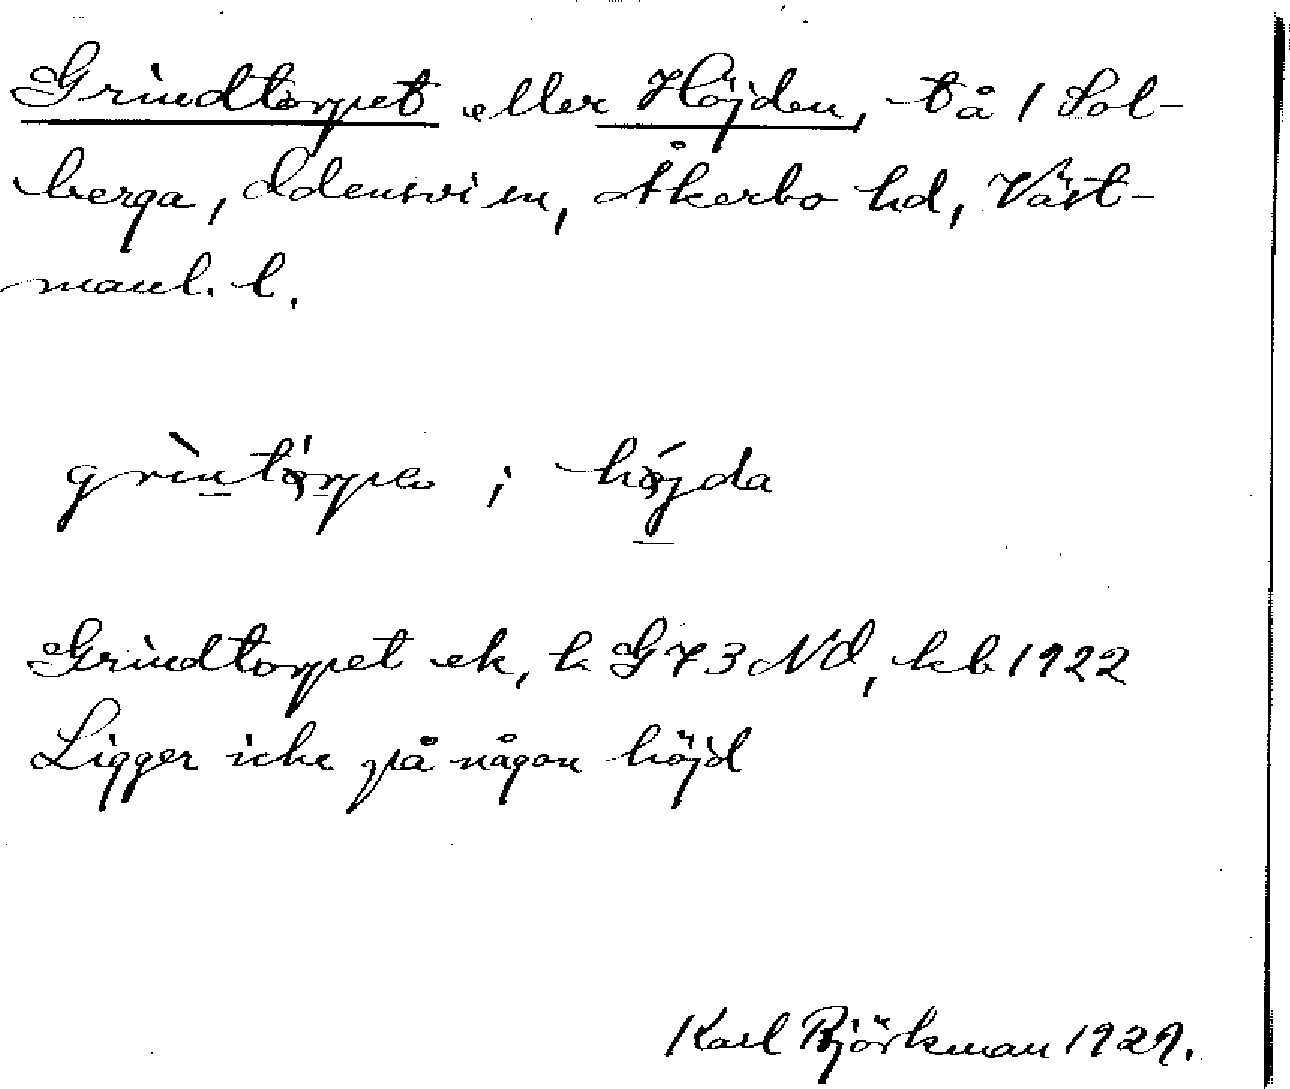 Grindtorpet eller Höjden, tå 1 Sol-
berga, Odensvi sn, Åkerbo hd, Väst-
manl. l.
grìntó̤rpεt ; hǿjda
Grindtorpet ek, k G 73 Nd, kb 1922
Ligger icke på någon höjd
Karl Björkman 1929.